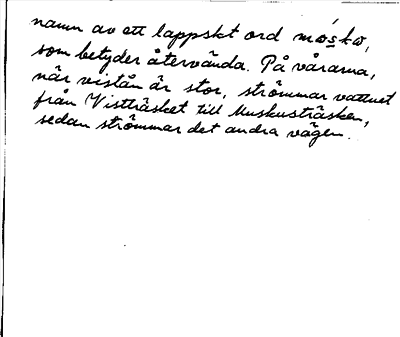 namn av ett lappskt ord móskω,
som betyder återvända. På vårarna,
när vistån är stor, strömmar vattnet
från Vistträsket till Muskusträsken,
sedan strömmar det andra vägen.